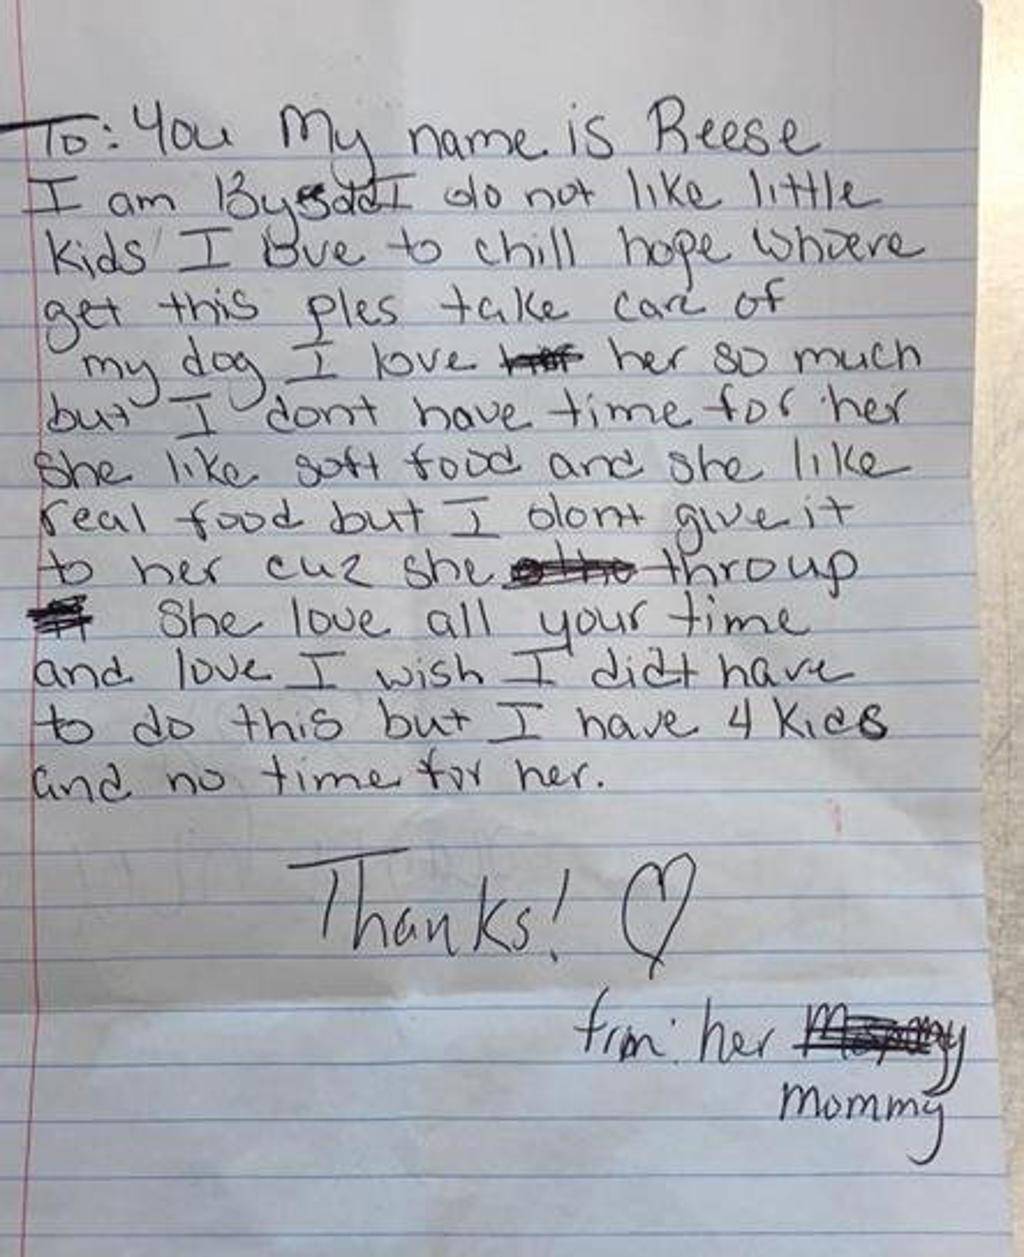 To: You My name is Reese
I am 13 I do not like little
kids I love to chill hope whoere
get this ples take care of
my dog I love her so much
but I dont have time for her
She like soft food and she like
real food but I dont give it
to her cuz she throup
She love all your time
and love I wish I didt have
to do this but I have 4 kids
and no time for her.
Thanks!
frm: her
mommy